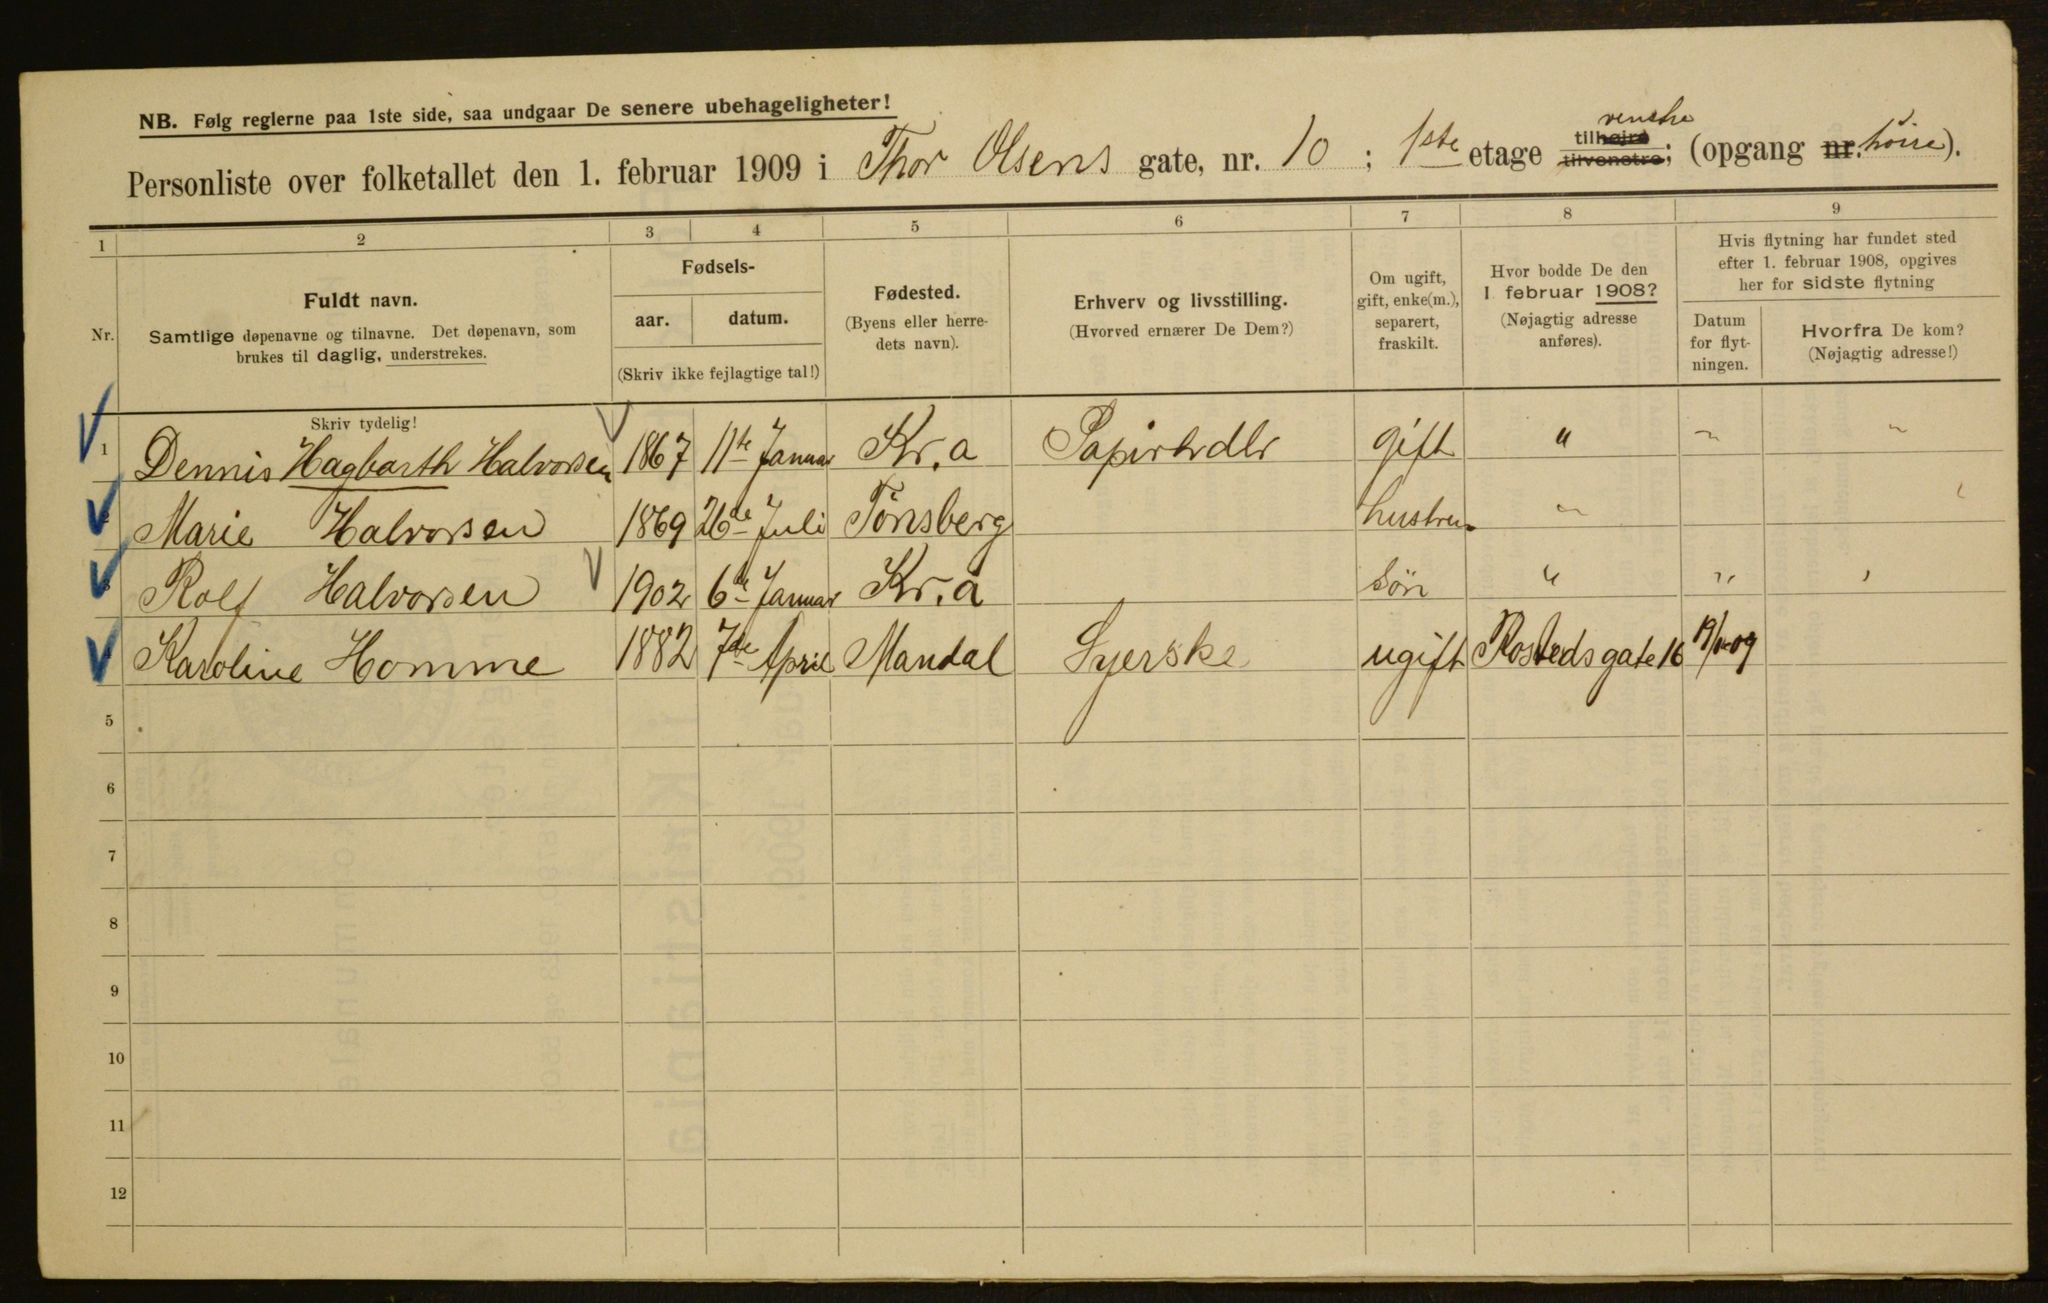 NB. Følg reglerne paa 1ste side, saa undgaar De senere ubehageligheter!
Personliste over folketallet den 1. februar 1909 i Thor Olsens gate, nr. 10; 1ste etage tilhøjre tilvenstre venstre; (opgang nr. höire).
1 2 3 4 5 6 7 8 9
Nr.
Fuldt navn.
Samtlige døpenavne og tilnavne. Det døpenavn, som
brukes til daglig, understrekes.
Fødsels-
aar. datum.
(Skriv ikke fejlagtige tal!)
Fødested.
(Byens eller herre-
dets navn).
Erhverv og livsstilling.
(Hvorved ernærer De Dem?)
Om ugift,
gift, enke(m.),
separert,
fraskilt.
Hvor bodde De den
1. februar 1908?
(Nøjagtig adresse
anføres).
Hvis flytning har fundet sted
efter 1. februar 1908, opgives
her for sidste flytning
Datum
for flyt-
ningen.
Hvorfra De kom?
(Nøjagtig adresse!)
Skriv tydelig!
1 Dennis Hagbarth Halvorsen 1867 11te Januar Kr.a Papirhdlr gift " " "
2 Marie Halvorsen 1869 26de Juli Tönsberg hustru "
3 Rolf Halvorsen 1902 6te Januar Kr.a Sön " "
Karoline Homme 1882 7de April Mandal Syerske ugift Rosteds gate 16
5
6
7
8
9
10
11
12